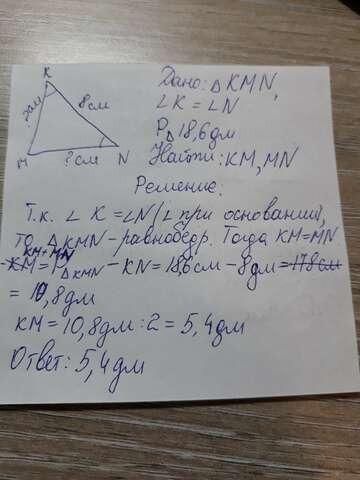 K
8см
M
?см
N
Дано: △ KMN,
∠K = ∠N
P△ 18,6дм
Найти: KM, MN
Решение:
Т.к. ∠ K = ∠N (∠ при основании),
то △KMN - равнобедр. Тогда KM=MN.
KM+MN
KM = P△KMN - KN = 18,6см - 8дм = 178см
= 10,8дм
KM = 10,8дм : 2 = 5,4дм
Ответ: 5,4дм